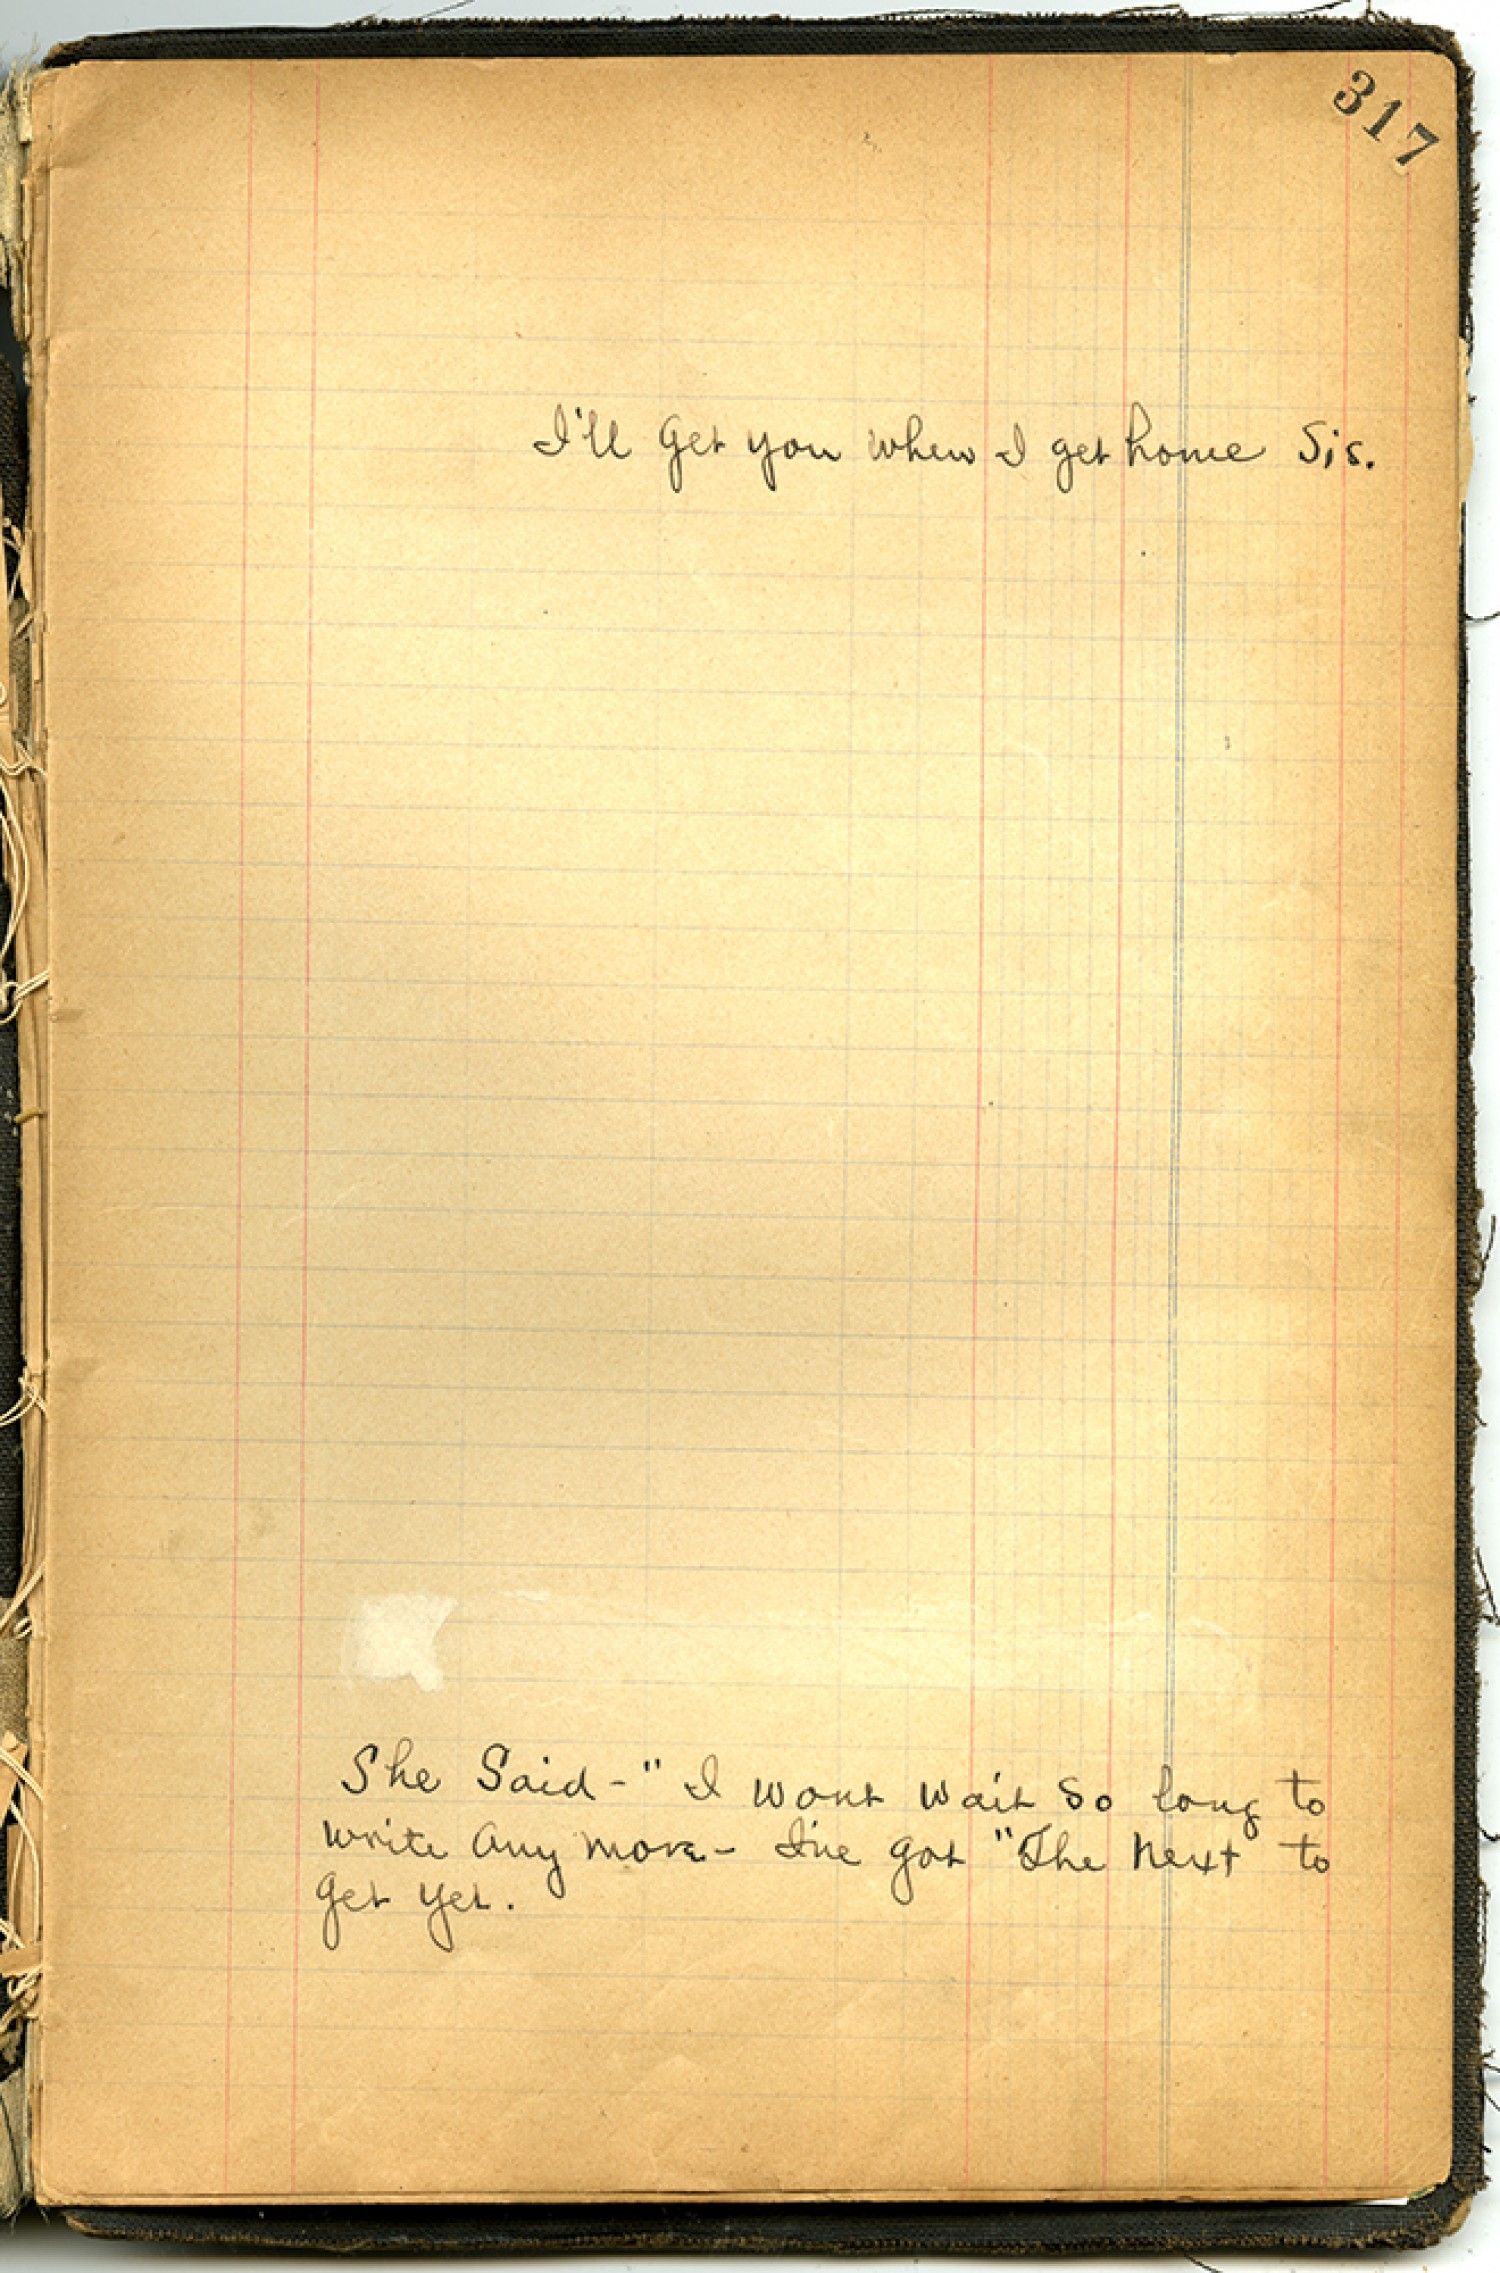 317
I'll Get you when I get home Sis.
She Said - " I wont wait so long to
write any more - I've got "The Next" to
get yet.